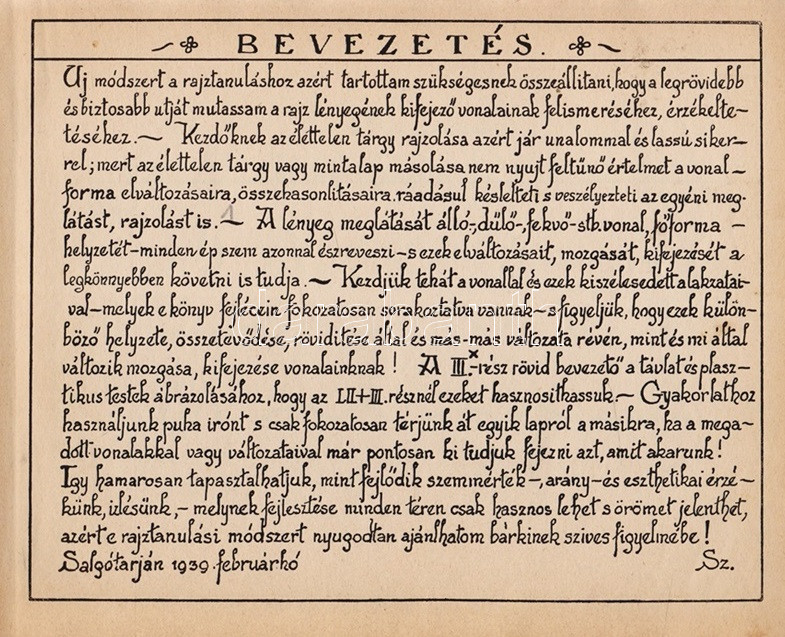 BEVEZETÉS.
Uj módszert a rajztanuláshoz azért tartottam szükségesnek összeállitani, hogy a legrövidebb
és biztosabb utját mutassam a rajz lényegének kifejező vonalainak felismeréséhez, érzékelte-
téséhez. ~ Kezdőknek az élettelen tárgy rajzolása azért jár unalommal és lassú siker-
rel; mert az élettelen tárgy vagy mintalap másolása nem nyujt feltűnő értelmet a vonal-
forma elváltozásaira, összehasonlitásaira. ráadásul késlelteti s veszélyezteti az egyéni meg-
látást, rajzolást is. ~ A lényeg meglátását álló-, dűlő-, fekvő-stb. vonal, főforma -
helyzetét-minden ép szem azonnal észreveszi-s ezek elváltozásait, mozgását, kifejezését a
legkönnyebben követni is tudja. ~ Kezdjük tehát a vonallal és ezek kiszélesedett alakzatai-
val-melyek e könyv fejlécein fokozatosan sorakoztatva vannak-s figyeljük, hogy ezek külön-
böző helyzete, összetevődése, röviditése által és más-más változata révén, mint és mi által
változik mozgása, kifejezése vonalainknak! A III.x-rész rövid bevezető a távlat és plasz-
tikus testek ábrázolásához, hogy az I.II+III. résznél ezeket hasznosithassuk. ~ Gyakorlathoz
használjunk puha irónt s csak fokozatosan térjünk át egyik lapról a másikra, ha a mega-
dott vonalakkal vagy változataival már pontosan ki tudjuk fejezni azt, amit akarunk!
Igy hamarosan tapasztalhatjuk, mint fejlődik szemmérték-, arány-és eszthetikai érzé-
künk, izlésünk, - melynek fejlesztése minden téren csak hasznos lehet s örömet jelenthet,
azért e rajztanulási módszert nyugodtan ajánlhatom bárkinek szives figyelmébe!
Salgótarján 1939. februárhó Sz.
darabanth